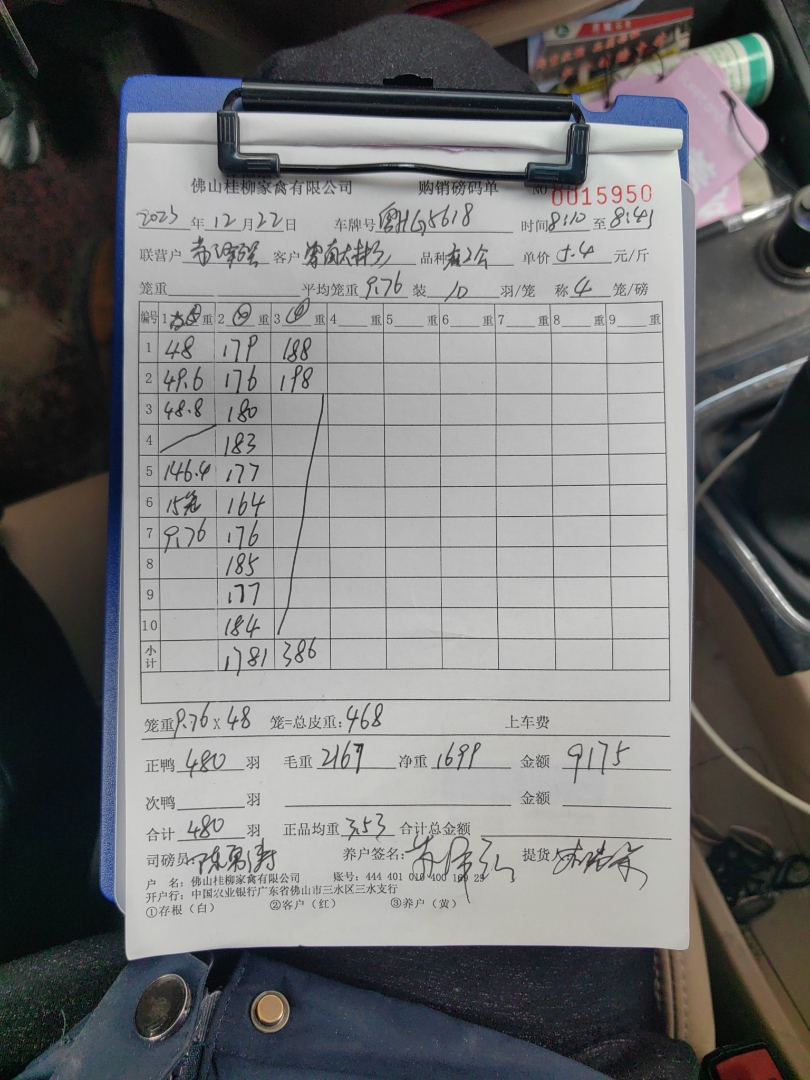 佛山桂柳家禽有限公司 购销磅码单 NO 0015950
2023年12月22日 车牌号 粤HG5618 时间8:10至8:41
联营户 客户 品种 单价 5.4 元/斤
笼重 平均笼重 9.76 装 10 羽/笼 称 4 笼/磅
编号 1 重 2 重 3 重 4 重 5 重 6 重 7 重 8 重 9 重
1 48 179 188
2 49.6 176 198
3 48.8 180
4 183
5 146.4 177
6 15笼 164
7 9.76 176
8 185
9 177
10 184
小计 1781 386
笼重9.76 x 48 笼=总皮重:468 上车费
正鸭 480 羽 毛重 2167 净重 1699 金额 9175
次鸭 羽 金额
合计 480 羽 正品均重 3.53 合计总金额
司磅员: 养户签名: 提货人
户 名: 佛山桂柳家禽有限公司 账号: 444 401 010 400 169 25
开户行: 中国农业银行广东省佛山市三水区三水支行
①存根(白) ②客户(红) ③养户(黄)